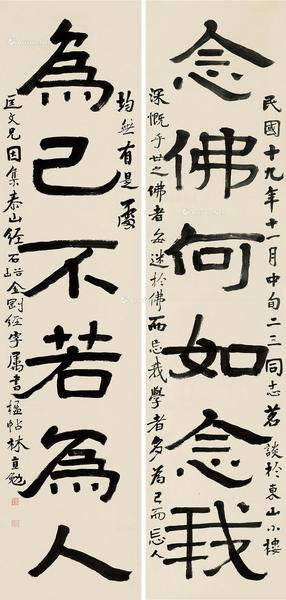 念佛何如念我
民國十九年十一月中旬二三同志茗談於東山小樓
深慨乎世之佛者每迷於佛而忘我學者多為己而忘人
為己不若為人
均無有是處
匡文兄因集泰山經石峪金剛經字屬書楹帖林直勉